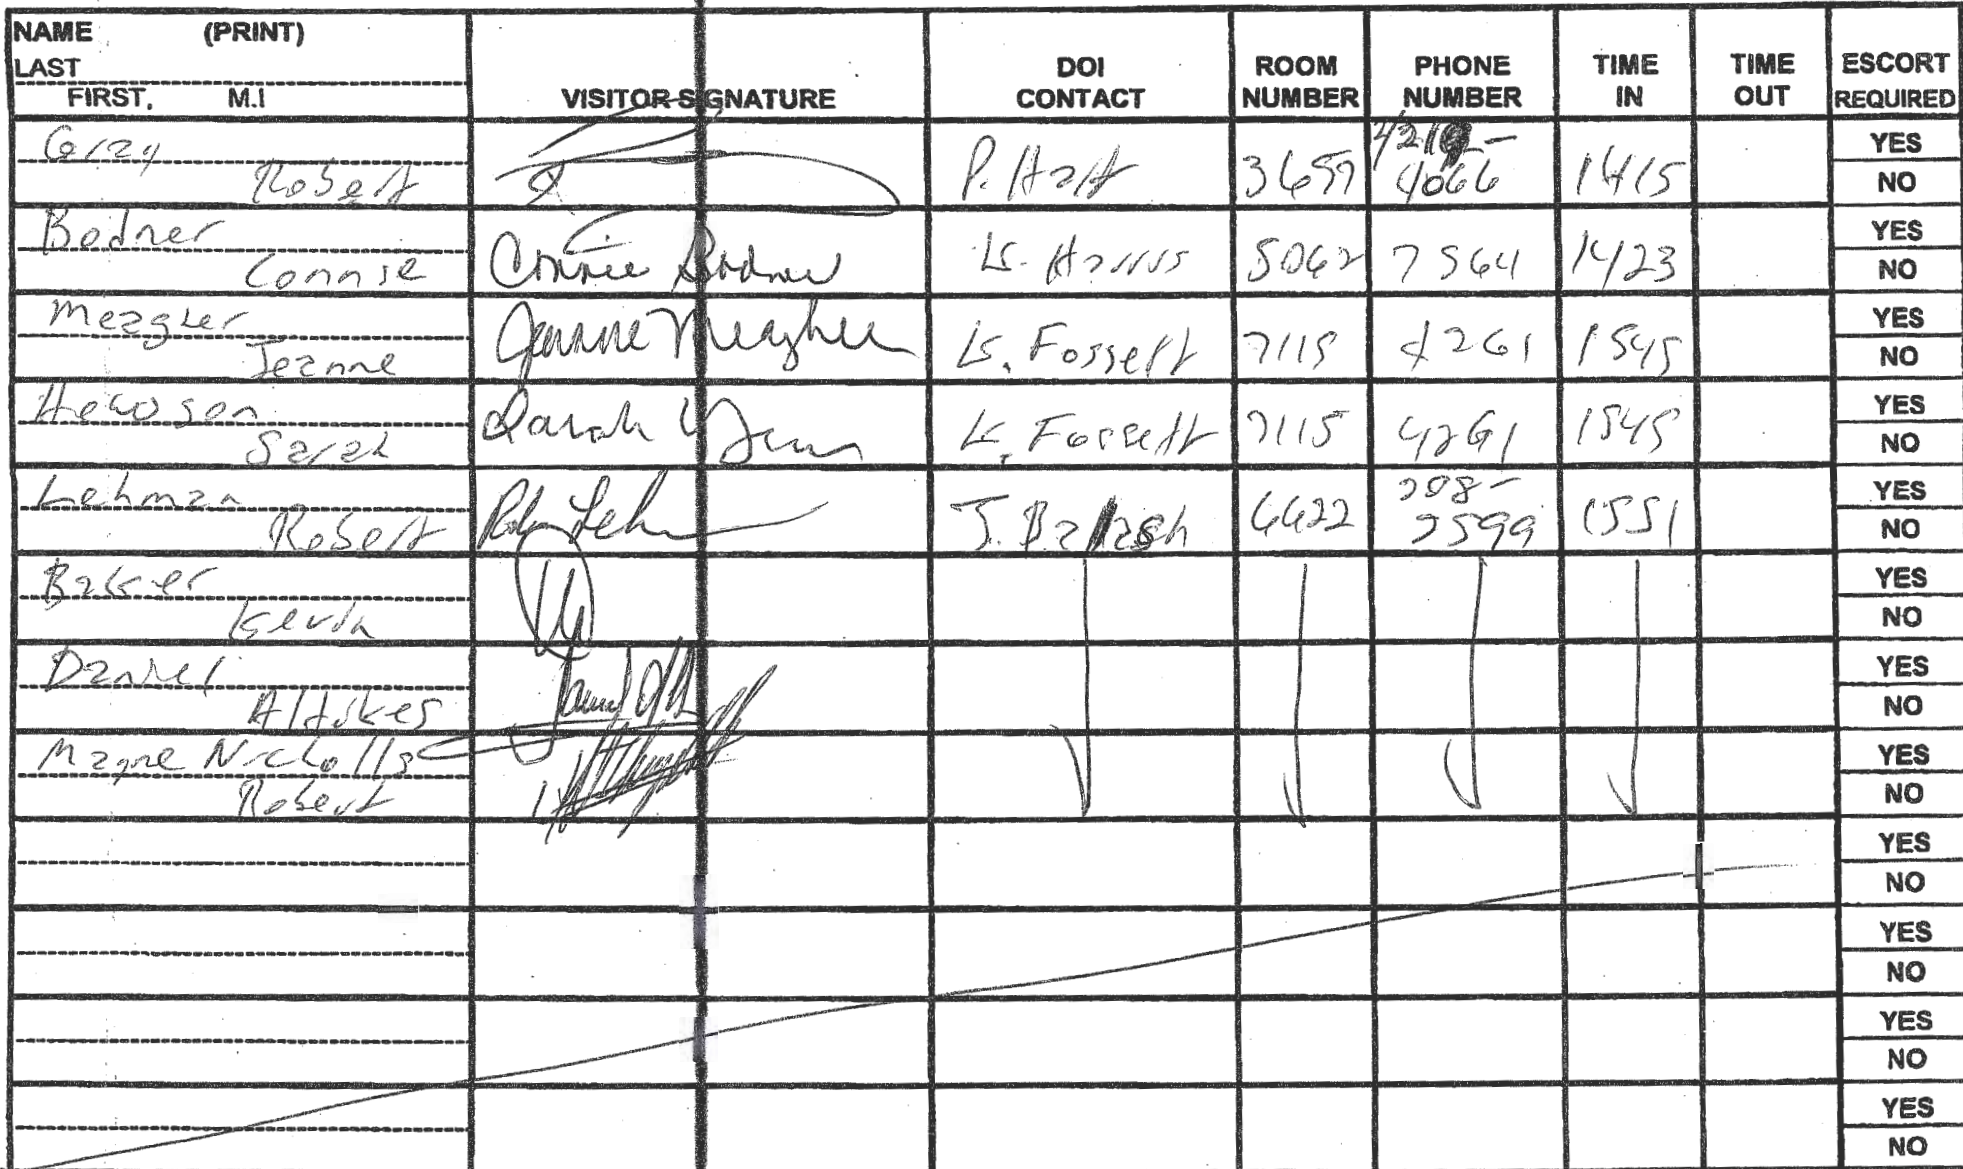 NAME (PRINT)
LAST
FIRST, M.I
VISITOR SIGNATURE
DOI
CONTACT
ROOM
NUMBER
PHONE
NUMBER
TIME
IN
TIME
OUT
ESCORT
REQUIRED
Gray
Robert
P. Hart
3657
4066
1415
YES
NO
Bodner
Connie
Connie Bodner
K. Harris
5062
7564
1423
YES
NO
Meagher
Jeanne
Jeanne Meagher
K. Fossett
7115
4261
1545
YES
NO
Hewson
Sarah
Sarah
K. Fossett
7115
4261
1545
YES
NO
Lehman
Robert
J. Balash
6622
208-
7599
1551
YES
NO
Baker
Kevin
YES
NO
Daniel
YES
NO
Mayne Nicholls
Robert
YES
NO
YES
NO
YES
NO
YES
NO
YES
NO